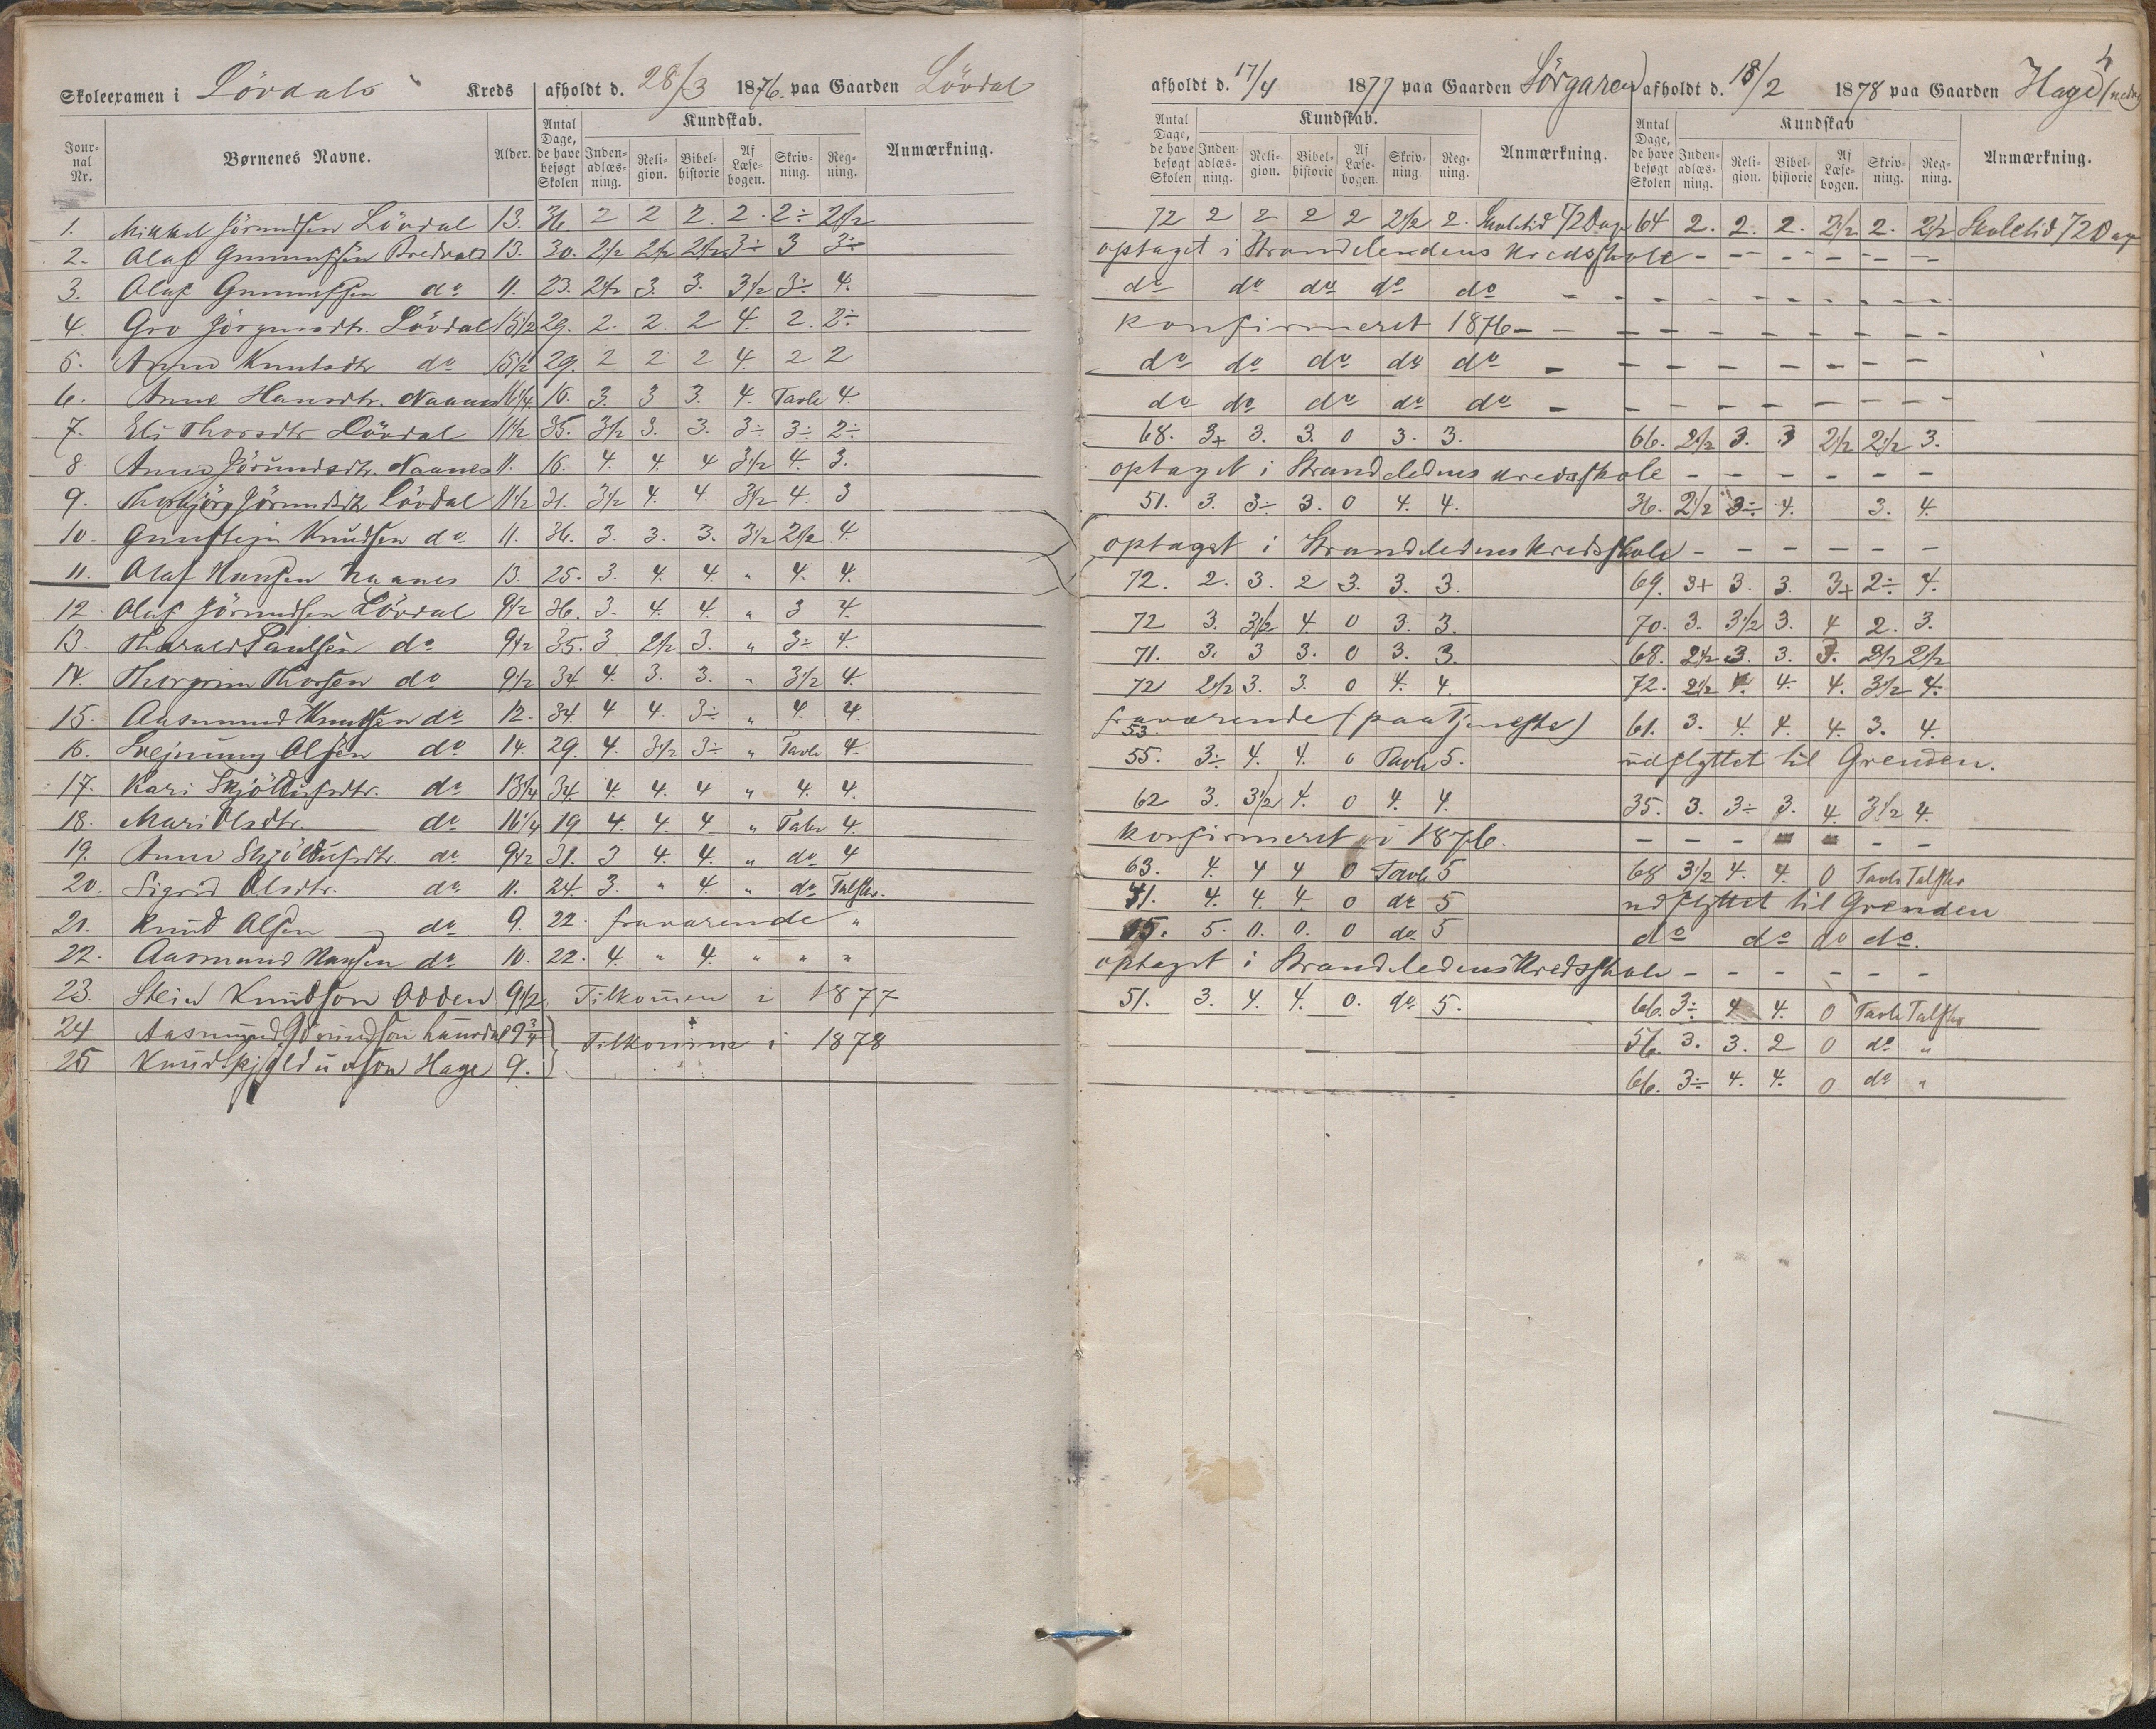 Skoleexamen i Lövdals Kreds afholdt d. 28/3 1876. paa Gaarden Lövdal
Jour-nal Nr. Børnenes Navne. Alder. Antal Dage, de have besøgt Skolen Kundskab. Inden-adlæs-ning. Reli-gion. Bibel-historie Af Læse-bogen. Skriv-ning. Reg-ning. Anmærkning.
1. Mikkel Jörundsen Lövdal 13. 36. 2 2 2. 2. 2÷ 2½
2. Olaf Gunnufsen 13. 30. 2½ 2½ 2½ 3÷ 3 3÷
3. Olaf Gunnufsen do 11. 23. 2½ 3. 3. 3½ 3÷ 4.
4. Gro Jörgensdtr. Lövdal 15½ 29. 2. 2. 2 4. 2. 2÷
5. Anne Knutsdtr do 15½ 29. 2 2 2 4. 2 2
6. Anne Hansdtr. Naanes 16¼ 16. 3. 3 3. 4. Tavle 4.
7. Eli Thorsdtr Lövdal 11½ 35. 3½ 3. 3. 3÷ 3÷ 2÷
8. Anne Jörundsdtr. Naanes 11. 16. 4. 4. 4 3½ 4. 3.
9. Thorbjörg Jörundsdtr Lövdal 11½ 31. 3½ 4. 4. 3½ 4. 3
10. Gunstein Knudsen do 11. 36. 3. 3. 3. 3½ 2½ 4.
11. Olaf Hansen Naanes 13. 25. 3. 4. 4. " 4. 4.
12. Olaf Jörundsen Lövdal 9½ 36. 3. 4. 4. " 3 4.
13. Tharald Paulsen do 9½ 35. 3 2½ 3. " 3÷ 4.
14. Thorgrim Thorsen do 9½ 34. 4. 3. 3. " 3½ 4.
15. Aasmund Knutsen do 12. 34. 4 4. 3÷ " 4. 4.
16. Svejnung Olsen do 14. 29. 4. 3½ 3÷ " Tavle 4.
17. Kari Skjöldufsdtr. do 13¼ 34. 4. 4. 4 " 4. 4.
18. Mari Olsdtr. do 16¼ 19 4. 4. 4. " Tavle 4.
19. Anne Skjöldufsdtr. do 9½ 31. 3 4. 4. " do 4
20. Sigrid Olsdtr. do 11. 24. 3. " 4. " do Talskr.
21. Knud Olsen do 9. 22. fraværende "
22. Aasmund Hansen do 10. 22. 4. " 4. " " "
23. Stein Knudson Odden 9½ Tilkommen i 1877
24 Aasmund Görundson 9¾ Tilkommen i 1878
25 Knud Skjoldulvson Hage 9.
afholdt d. 17/4 1877 paa Gaarden Sörgaren
Antal Dage, de have besøgt Skolen Kundskab. Inden-adlæs-ning. Reli-gion. Bibel-historie Af Læse-bogen. Skriv-ning Reg-ning. Anmærkning.
72 2 2 2 2 2½ 2. Skoletid 72 Dage
optaget i Strandeledens Kredsskole
do do do do do
Konfirmeret 1876
do do do do do
do do do do do
68. 3+ 3. 3. 0 3. 3.
optaget i Strandeledens Kredsskole
51. 3. 3÷ 3. 0 4. 4.
optaget i Strandeledens Kredsskole
72. 2. 3. 2 3. 3. 3.
72 3. 3½ 4. 0 3. 3.
71. 3. 3 3. 0 3. 3.
72 2½ 3. 3. 0 4. 4.
fraværende (paa Tjeneste)
53
55. 3÷ 4. 4. 0 Tavle 5.
62 3. 3½ 4. 0 4. 4.
Konfirmeret i 1876.
63. 4. 4 4 0 Tavle 5
41. 4. 4. 4. 0 do 5
5. 0. 0. 0 do 5
optaget i Strandeledens Kredsskole
51. 3. 4. 4. 0. do 5.
afholdt d. 18/2 1878 paa Gaarden Hage
4
Antal Dage, de have besøgt Skolen Kundskab Inden-adlæs-ning. Reli-gion. Bibel-historie Af Læse-bogen. Skriv-ning. Reg-ning. Anmærkning.
64 2. 2. 2. 2½ 2. 2½ Skoletid 72 Dage
66. 2½ 3. 3 2½ 2½ 3.
36. 2½ 3÷ 4. 3. 4.
69. 3+ 3. 3. 3+ 2÷ 4.
70. 3. 3½ 3. 4 2. 3.
68. 2½ 3. 3. 3. 2½ 2½
72. 2½ 4. 4. 4. 3½ 4.
61. 3. 4. 4. 4. 3. 4.
udflyttet til Grenden.
35. 3. 3÷ 3. 4. 3½ 4.
68 3½ 4. 4. 0 Tavle Talskr
udflyttet til Grenden
do do do do.
66. 3÷ 4 4. 0 Tavle Talskr
56. 3. 3. 2 0 do "
66. 3÷ 4. 4. 0 do "